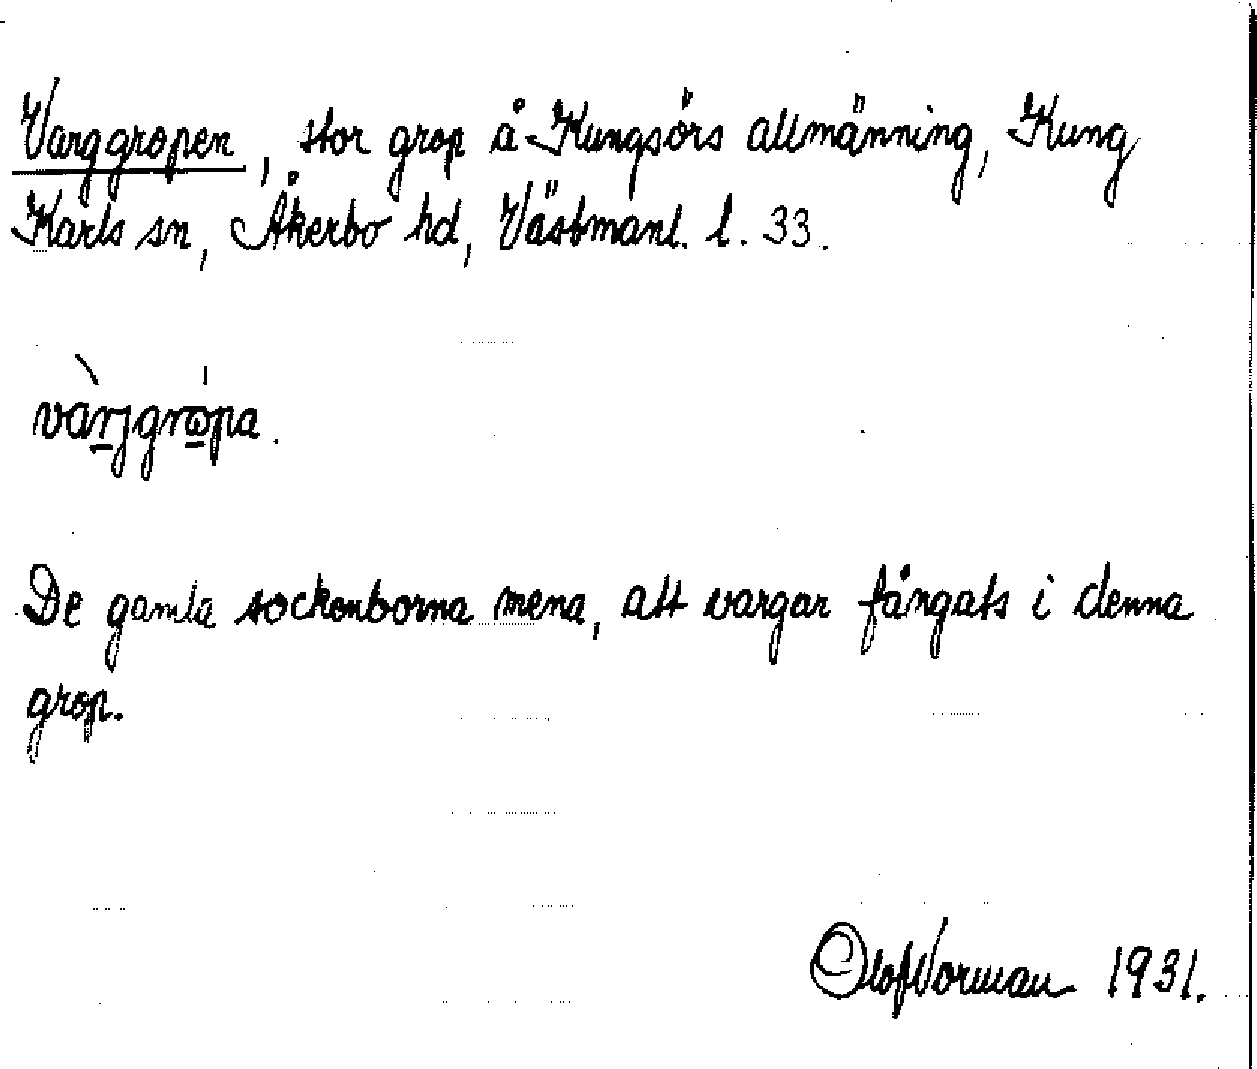 Varggropen, stor grop å Kungsörs allmänning, Kung
Karls sn, Åkerbo hd, Västmanl. l. 33.
vàrjgrópa.
De gamla sockenborna mena, att vargar fångats i denna
grop.
Olof Norman 1931.